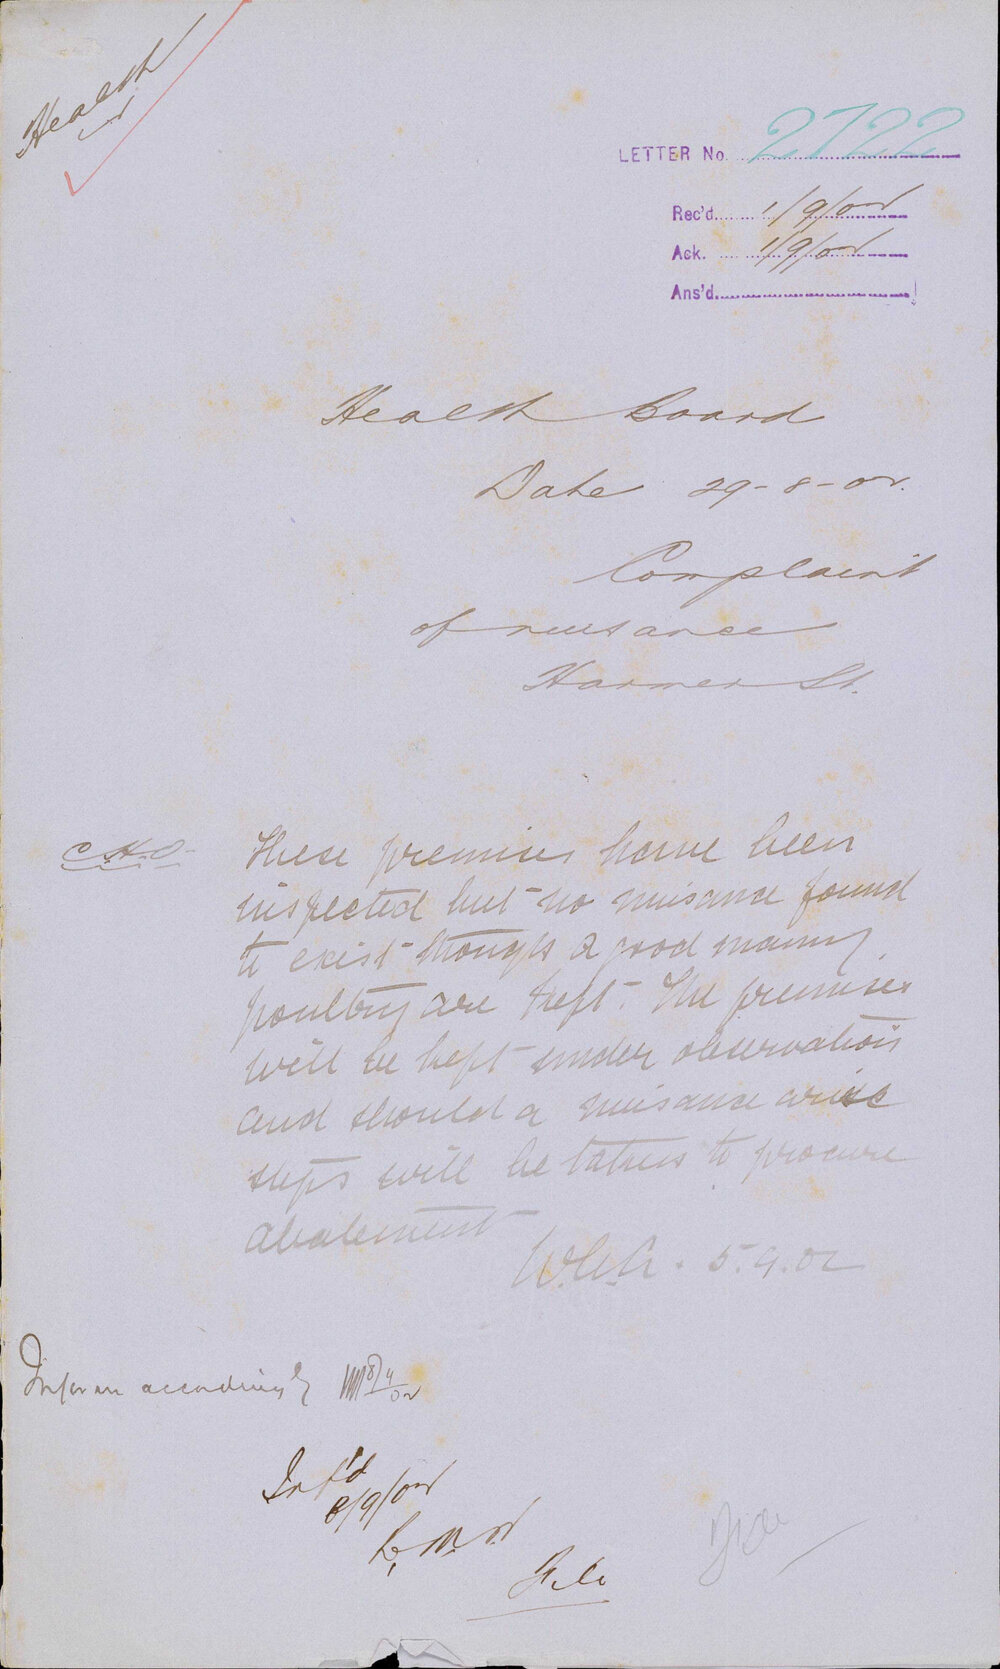 Health
LETTER No. 2722
Rec'd. 1/9/02
Ack. 1/9/02
Ans'd.
Health Board
Date 29-8-02.
Complaint
of nuisance
Harmer St.
C.H.O. These premises have been
inspected but no nuisance found
to exist though a good many
poultry are kept. The premises
will be kept under observation
and should a nuisance arise
steps will be taken to procure
abatement
5.9.02
Inform accordingly
Inf'd
8/9/02
File
File